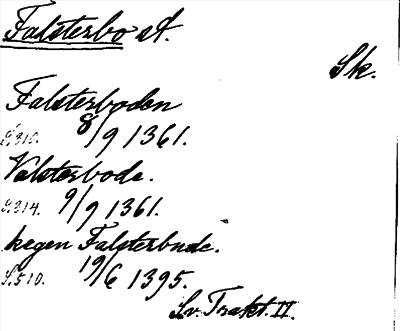 Falsterbo st.
Sk.
Falsterboden
S.310. 8/9 1361.
Valsterbode.
S.314. 9/9 1361.
kegen Falsterbude.
S.510. 19/6 1395.
Sv. Trakt. II.